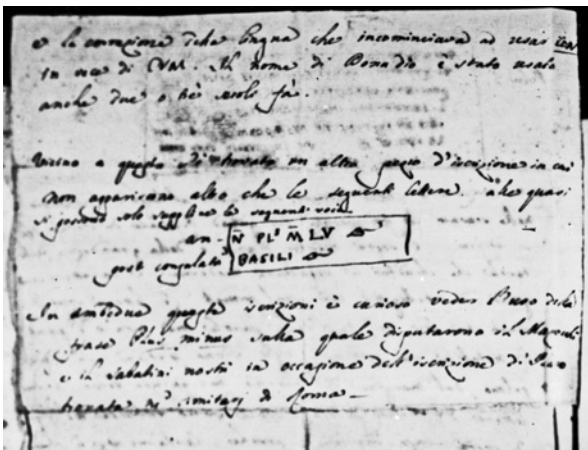 e la corruzione della lingua che incominciava ad usar
in vece di VM. Il nome di è stato usato
anche due o tré secoli fà.
Vicino a questo si è trovato un altro pezzo d'iscrizione in cui
non appariscono altro che le seguenti lettere, alle quali
si possono solo supplire le seguenti voci
an - N̄ PLꝰ M̄ LV
post consulatū BASILI
In ambedue queste iscrizioni è curioso veder l'uso della
frase Plus minus sulla quale disputarono il
e il Sabatini nostri in occasione dell'iscrizione di
trovata ne' cimiterj di Roma —